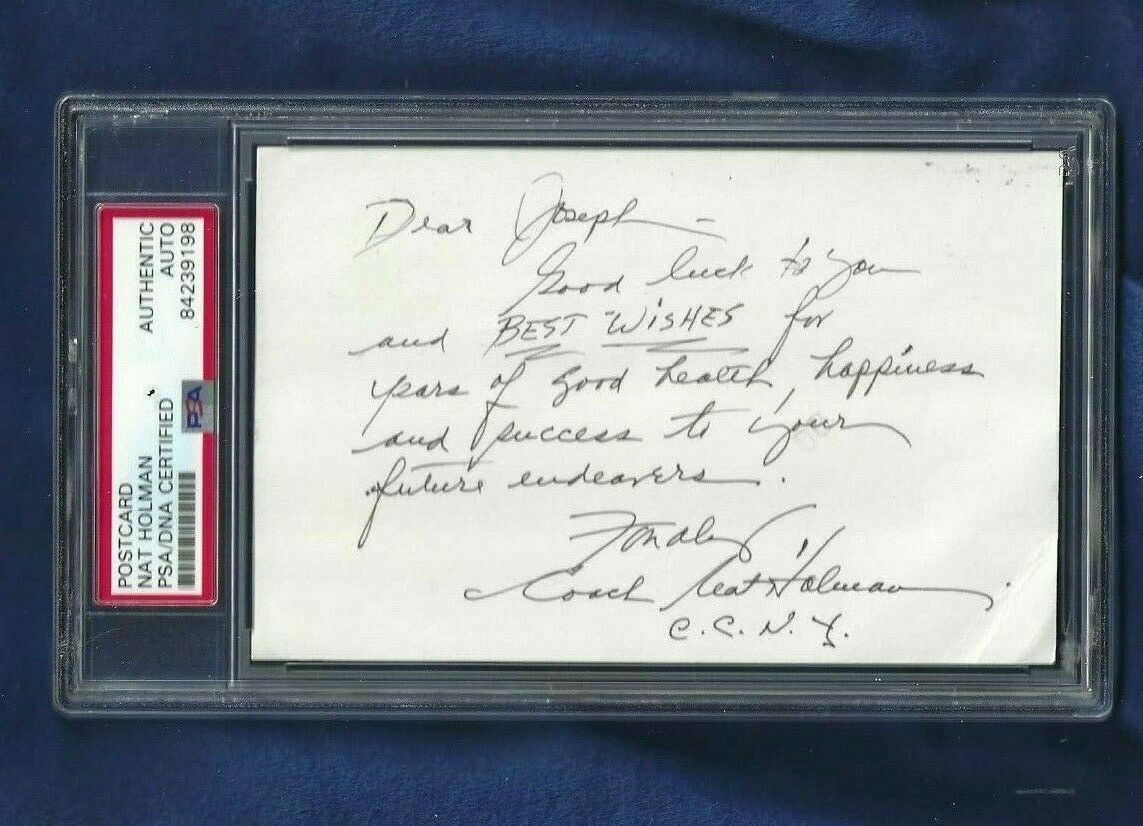 POSTCARD
NAT HOLMAN AUTHENTIC
PSA/DNA CERTIFIED AUTO
84239198
PSA
Dear Joseph —
Good luck to you
and BEST WISHES for
years of good health, happiness
and success to your
future endeavers.
Fondly
Coach Nat Holman
C.C.N.Y.